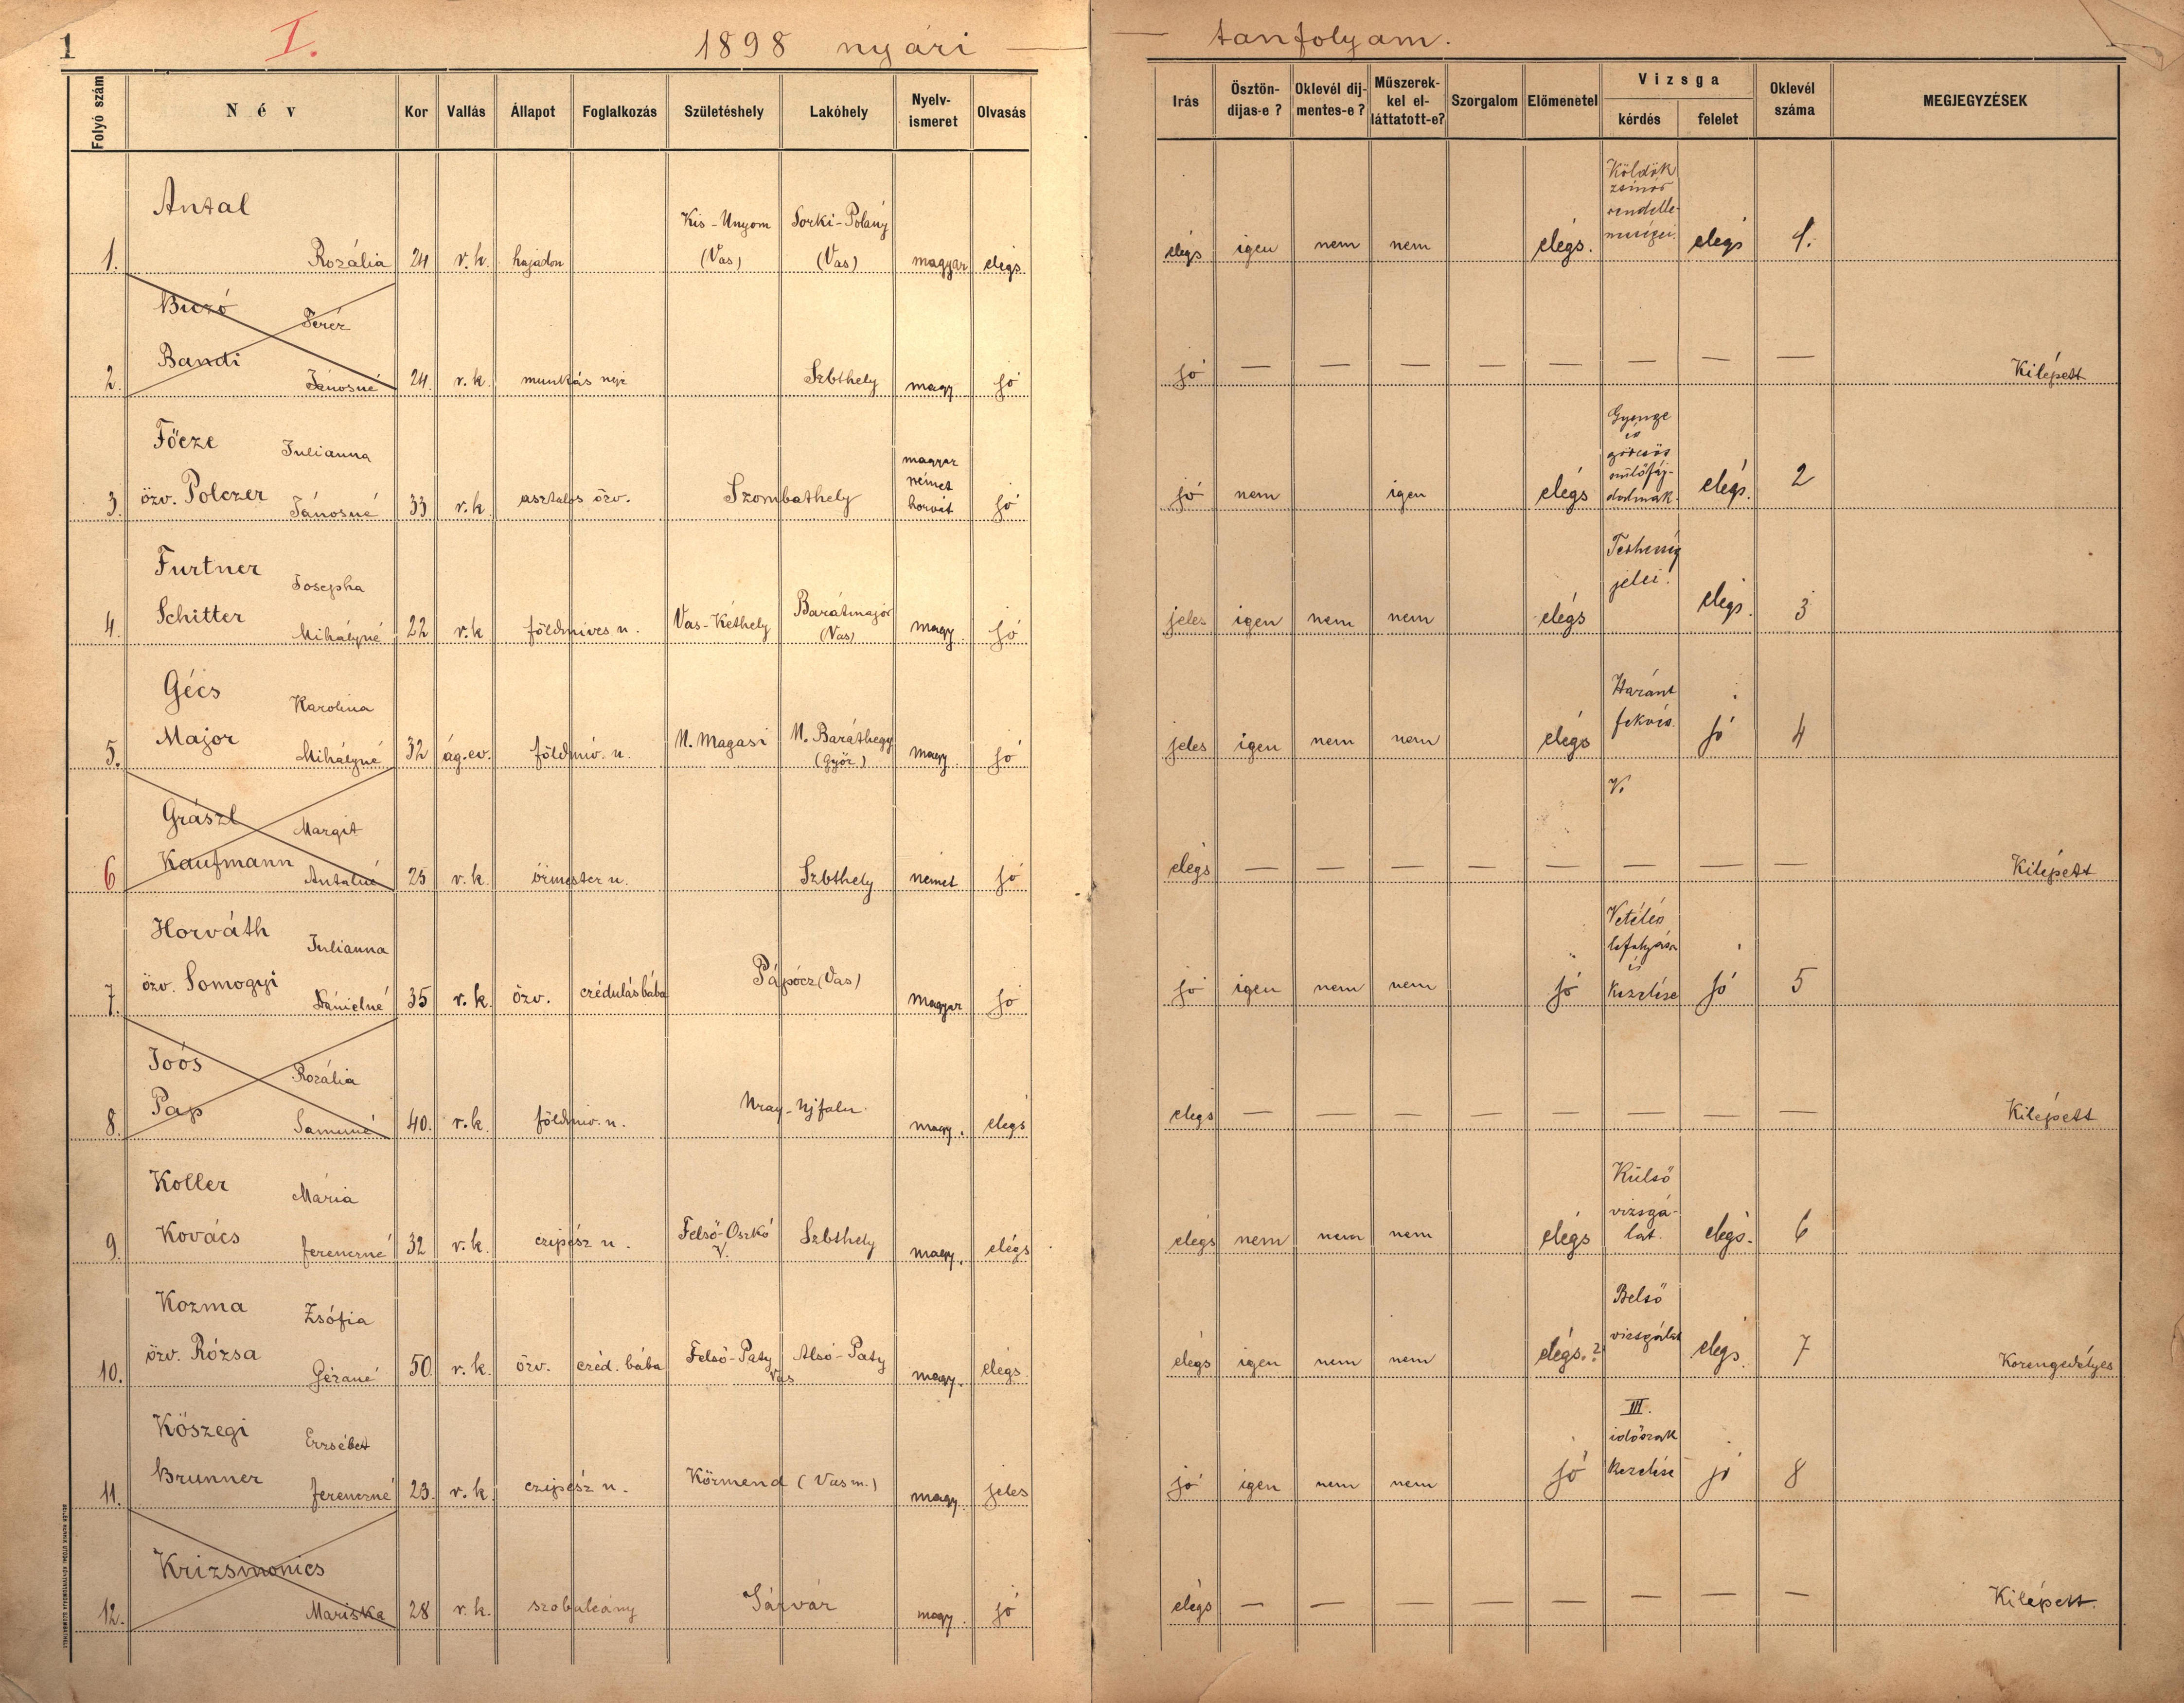 1 I. 1898 nyári — — tanfolyam.
Folyó szám Név Kor Vallás Állapot Foglalkozás Születéshely Lakóhely Nyelv-ismeret Olvasás Irás Ösztön-dijas-e? Oklevél dij-mentes-e? Műszerek-kel el-láttatott-e? Szorgalom Előmenetel Vizsga kérdés felelet Oklevél száma MEGJEGYZÉSEK
Antal Kis-Unyom Sorki-Polány Köldök zsinór rendelle-
1. Rozália 24 r.k. hajadon (Vas) (Vas) magyar elégs. elégs igen nem nem elégs. elégs 1.
Buzó Teréz
Bandi
2. Jánosné 24. r.k. munkás neje Szbthely magy jó jó — — — — — — — — Kilépett
Főcze Julianna magyar német Gyenge és görcsös
3. özv. Polczer Jánosné 33 r.k. asztalos özv. Szombathely horvát jó jó nem igen elégs szülőfáj-dalmak. elégs. 2
Furtner Josepha Terhesség jelei.
Schitter
4. Mihályné 22 r.k. földmíves n. Vas-Kéthely Barátmajor (Vas) magy. jó jeles igen nem nem elégs elégs. 3
Gécs Karolina Haránt fekvés.
Major
5. Mihályné 32 ág.ev. földmív. n. N. Magasi N. Baráthegy (Győr) magy. jó jeles igen nem nem elégs jó 4
V.
Grászl Margit
Kaufmann
6 Antalné 25 r.k. őrmester n. Szbthely német jó elégs — — — — — — — — Kilépett
Horváth Julianna Vetélés lefolyása és
özv. Somogyi
7. Dánielné 35 r.k. özv. czédulás bába Pápócz (Vas) magyar jó jó igen nem nem jó kezelése jó 5
Joós Rozália
Pap
8. Samuné 40. r.k. földmiv. n. Uray-Ujfalu magy. elégs elégs — — — — — — — — Kilépett
Koller Mária Külső vizsgá-lat.
Kovács
9. ferenczné 32 r.k. czipész n. Felső-Oszkó V. Szbthely magy. elégs elégs nem nem nem elégs elégs. 6
Kozma Zsófia Belső vizsgálat
özv. Rózsa
10. Gézáné 50 r.k. özv. czéd. bába Felső-Paty Alsó-Paty Vas magy. elégs. elégs igen nem nem elégs.? elégs. 7 Korengedélyes
Kőszegi Erzsébet III. időszak
Brunner
11. ferenczné 23. r.k. czipész n. Körmend (Vasm.) magy. jeles jó igen nem nem jó kezelése jó 8
Krizsmonics
12. Mariska 28 r.k. szobaleány Sárvár magy. jó elégs — — — — — — — — Kilépett.